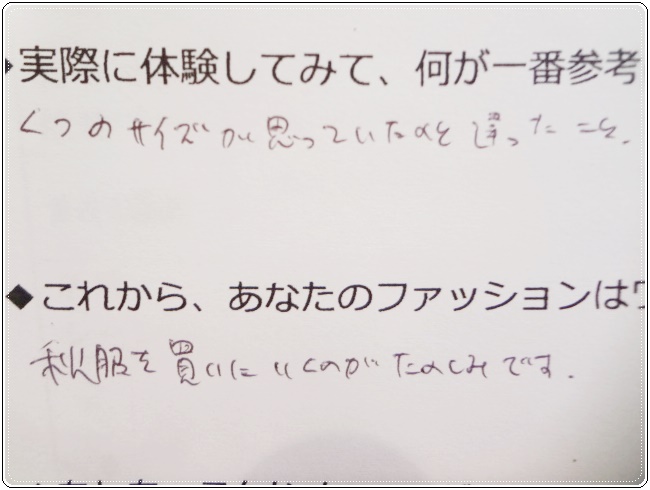 実際に体験してみて、何が一番参考
くつのサイズが思っていたのと違ったこと。
◆これから、あなたのファッションは
秋服を買いにいくのがたのしみです。